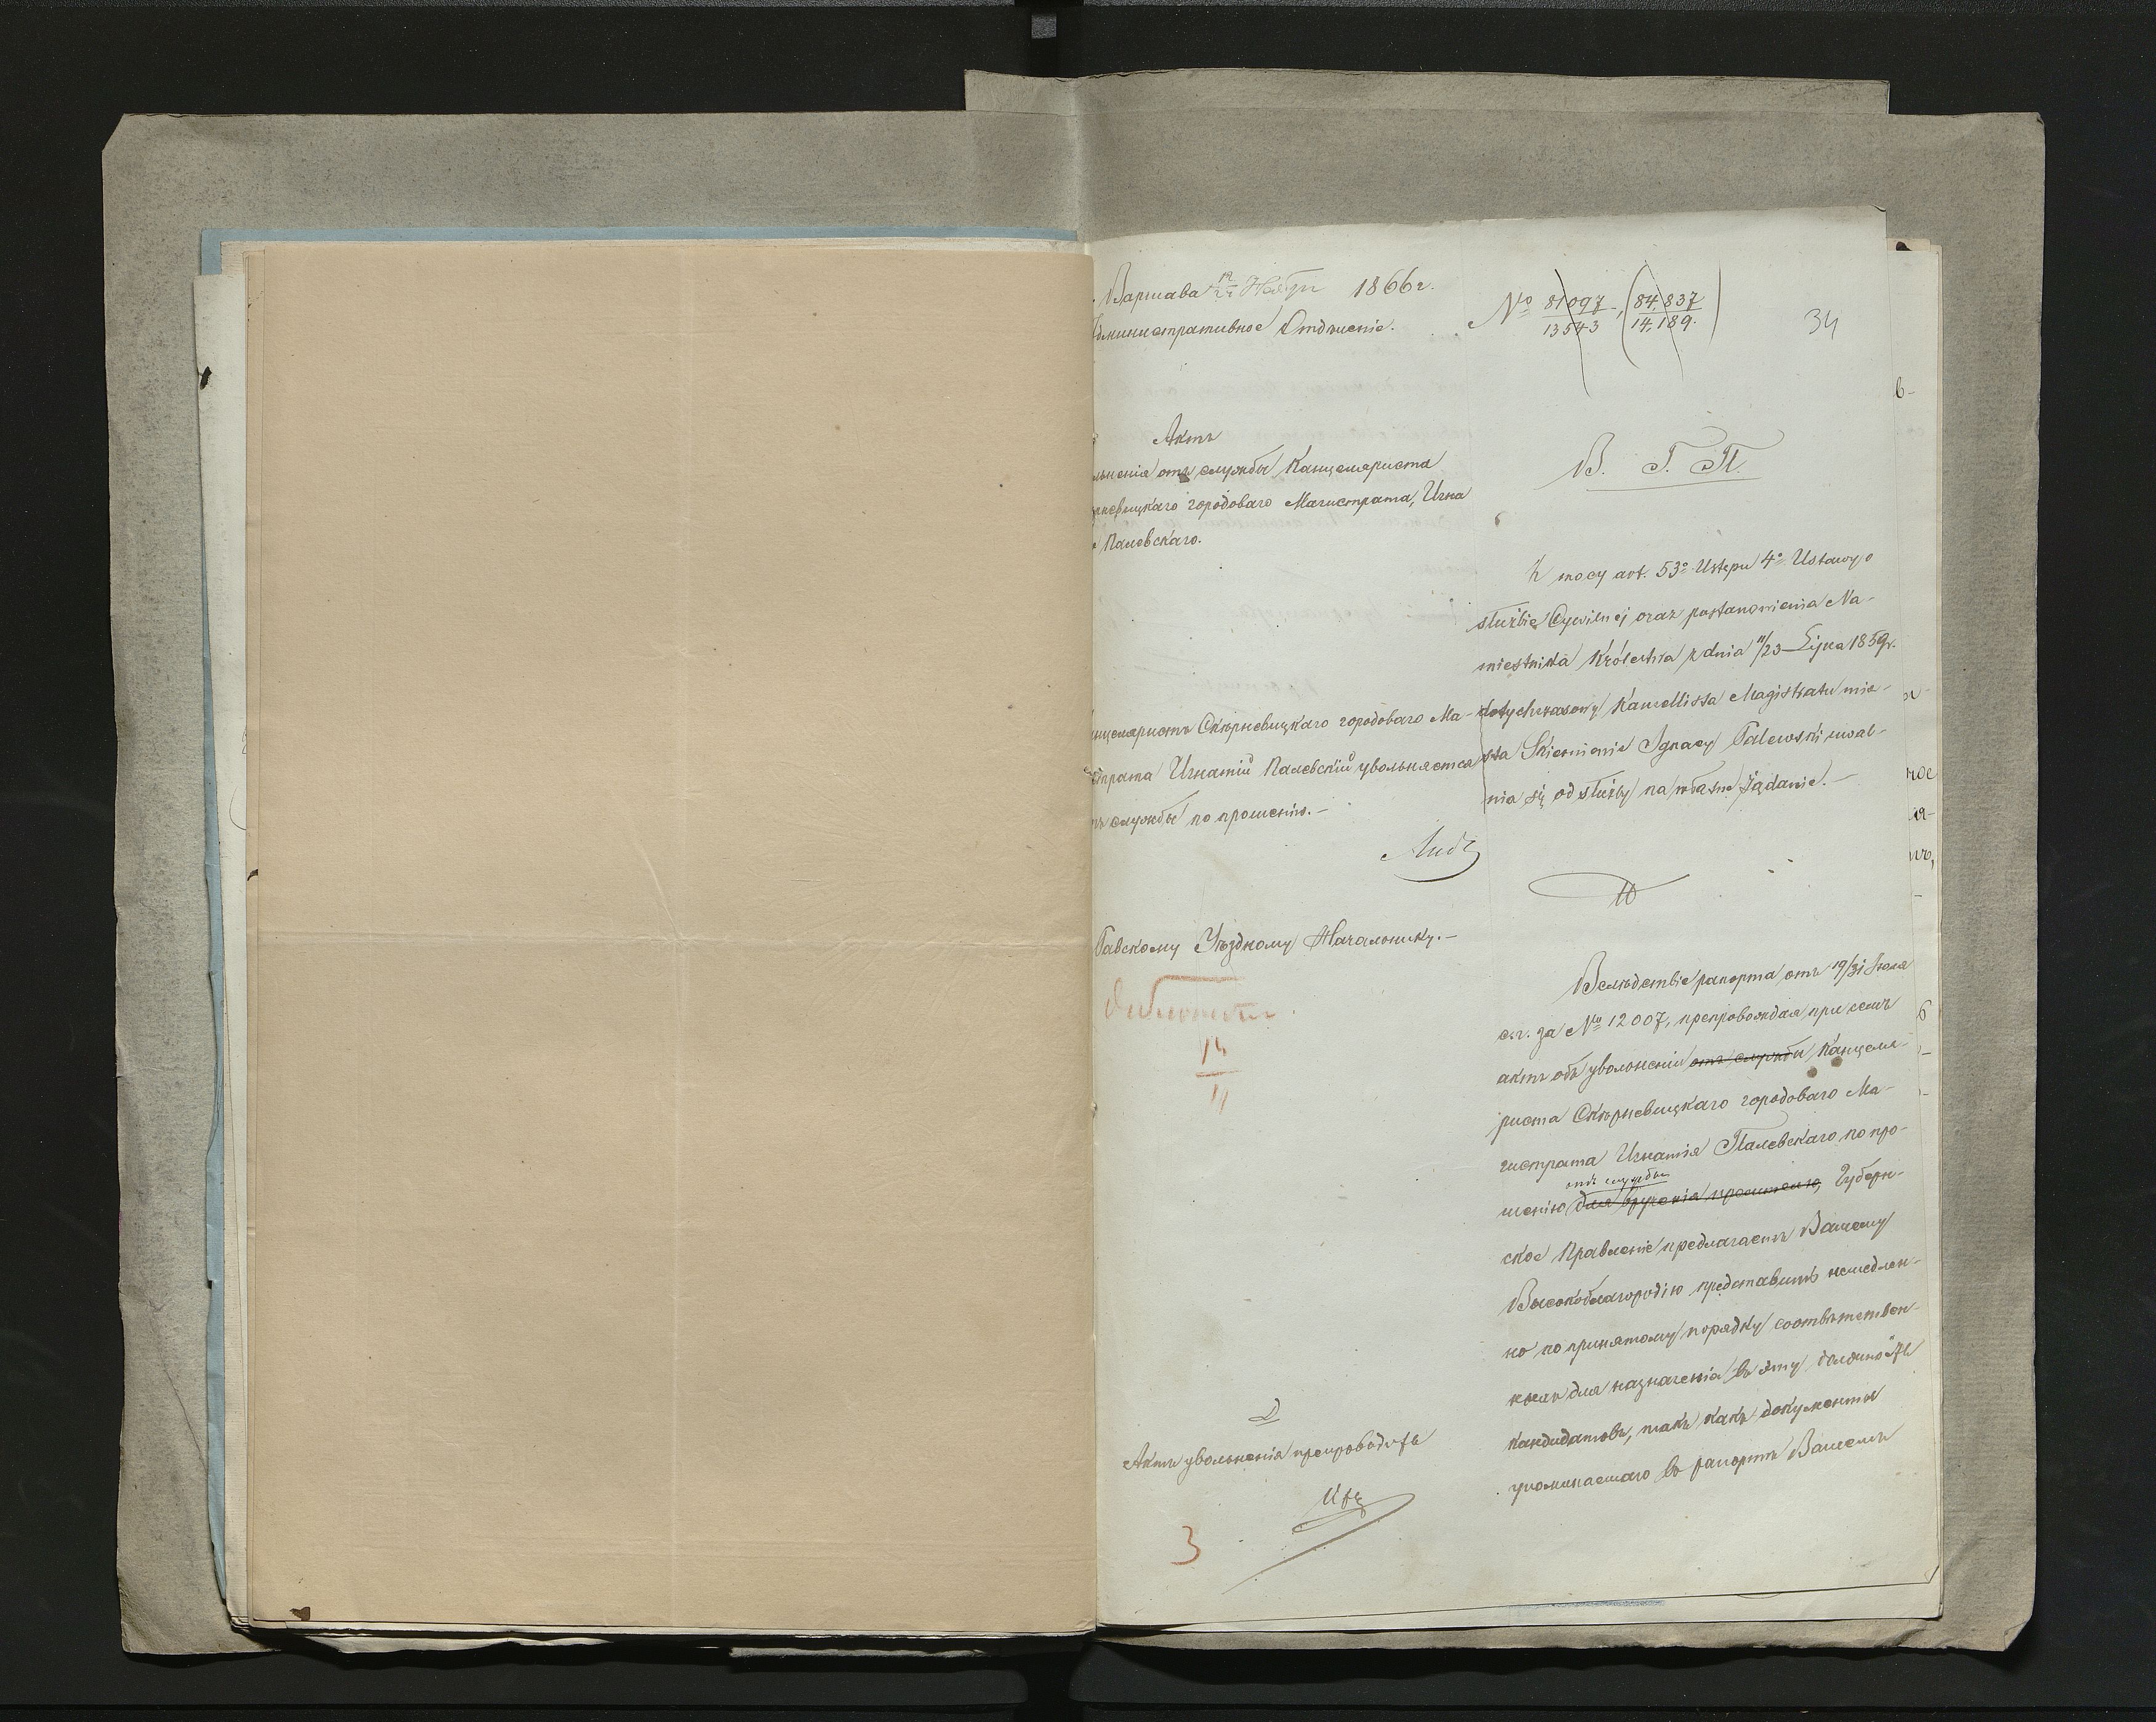 Варшава 12/24 Ноябр 1866 г.
дминистративное Отдѣленіе.
№ 81097/13543, (84,837/14,189.)
34
Актъ
льненія отъ службы Канцеляриста
рневицкаго городоваго Магистрата, Игна
Палевскаго.
В. Г. П.
Z mocy art. 53º Ustępu 4º Ustawy o
służbie Cywilnéj oraz postanowienia Na-
miestnika Królestwa z dnia 11/23 Lipca 1859 r.
dotychczasowy Kancellista Magistratu mia-
sta Skierniewic Ignacy Palewski uwal-
nia się od służby na własne żądanie.—
нцеляристъ Скѣрневицкаго городоваго Ма-
страта Игнатій Палевскій увольняется
ъ службы по прошенію.—
Равскому Уѣздному Начальнику.—
Вслѣдствіе рапорта отъ 19/31 Іюля
с. г. за № 12007, препровождая при семъ
актъ объ увольненіи отъ службы Канцеля-
риста Скѣрневицкаго городоваго Ма-
гистрата Игнатія Палевскаго по про-
отъ службы
шенію для врученія просителю, Губерн-
ское Правленіе предлагаетъ Вашему
Высокоблагородію представить немедлен-
но по принятому порядку соотвѣтствен-
ныхъ для назначенія въ эту должность
кандидатовъ, такъ какъ документы
упоминаемаго въ рапортѣ Вашемъ
Актъ увольненія препроводить
3